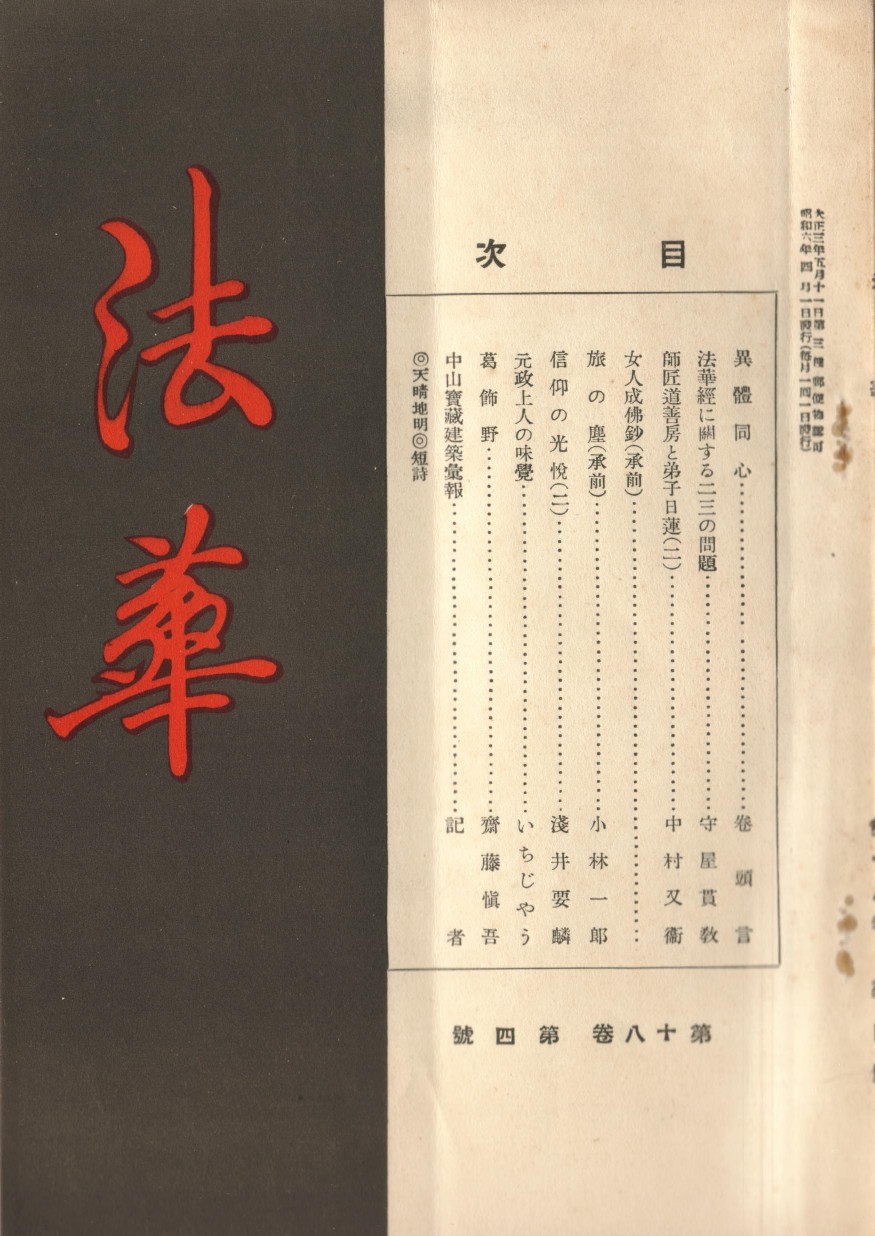 大正三年五月十一日第三種郵便物認可
昭和六年四月一日發行(毎月一回一日發行)
目次
異體同心……………………卷頭言
法華經に關する二三の問題……………………守屋貫敎
師匠道善房と弟子日蓮(二)……………………中村又衞
女人成佛鈔(承前)……………………
旅の塵(承前)……………………小林一郎
信仰の光悅(二)……………………淺井要麟
元政上人の味覺……………………いちじやう
葛飾野……………………齋藤愼吾
中山寶藏建築彙報……………………記者
◎天晴地明◎短詩
第十八卷 第四號
法華